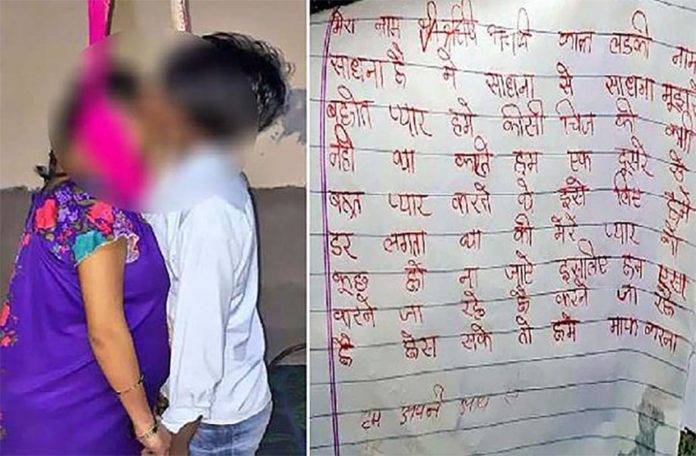 मेरा नाम प्रदीप काना लडकी नाम
साधना है मे साधना से साधना मुझसे
बहोत प्यार हमे कीसी चिज की कमी
नही था हम एक दूसरे के
बहुत प्यार करने थे इसी लिए हमे
डर लगता था की मेरे प्यार को
कुछ हो ना जाऐ इसलिए हम ऐसा
करने जा रहे है करने जा रहे
है होरा सके तो हमे माफ करना
अपने साथ